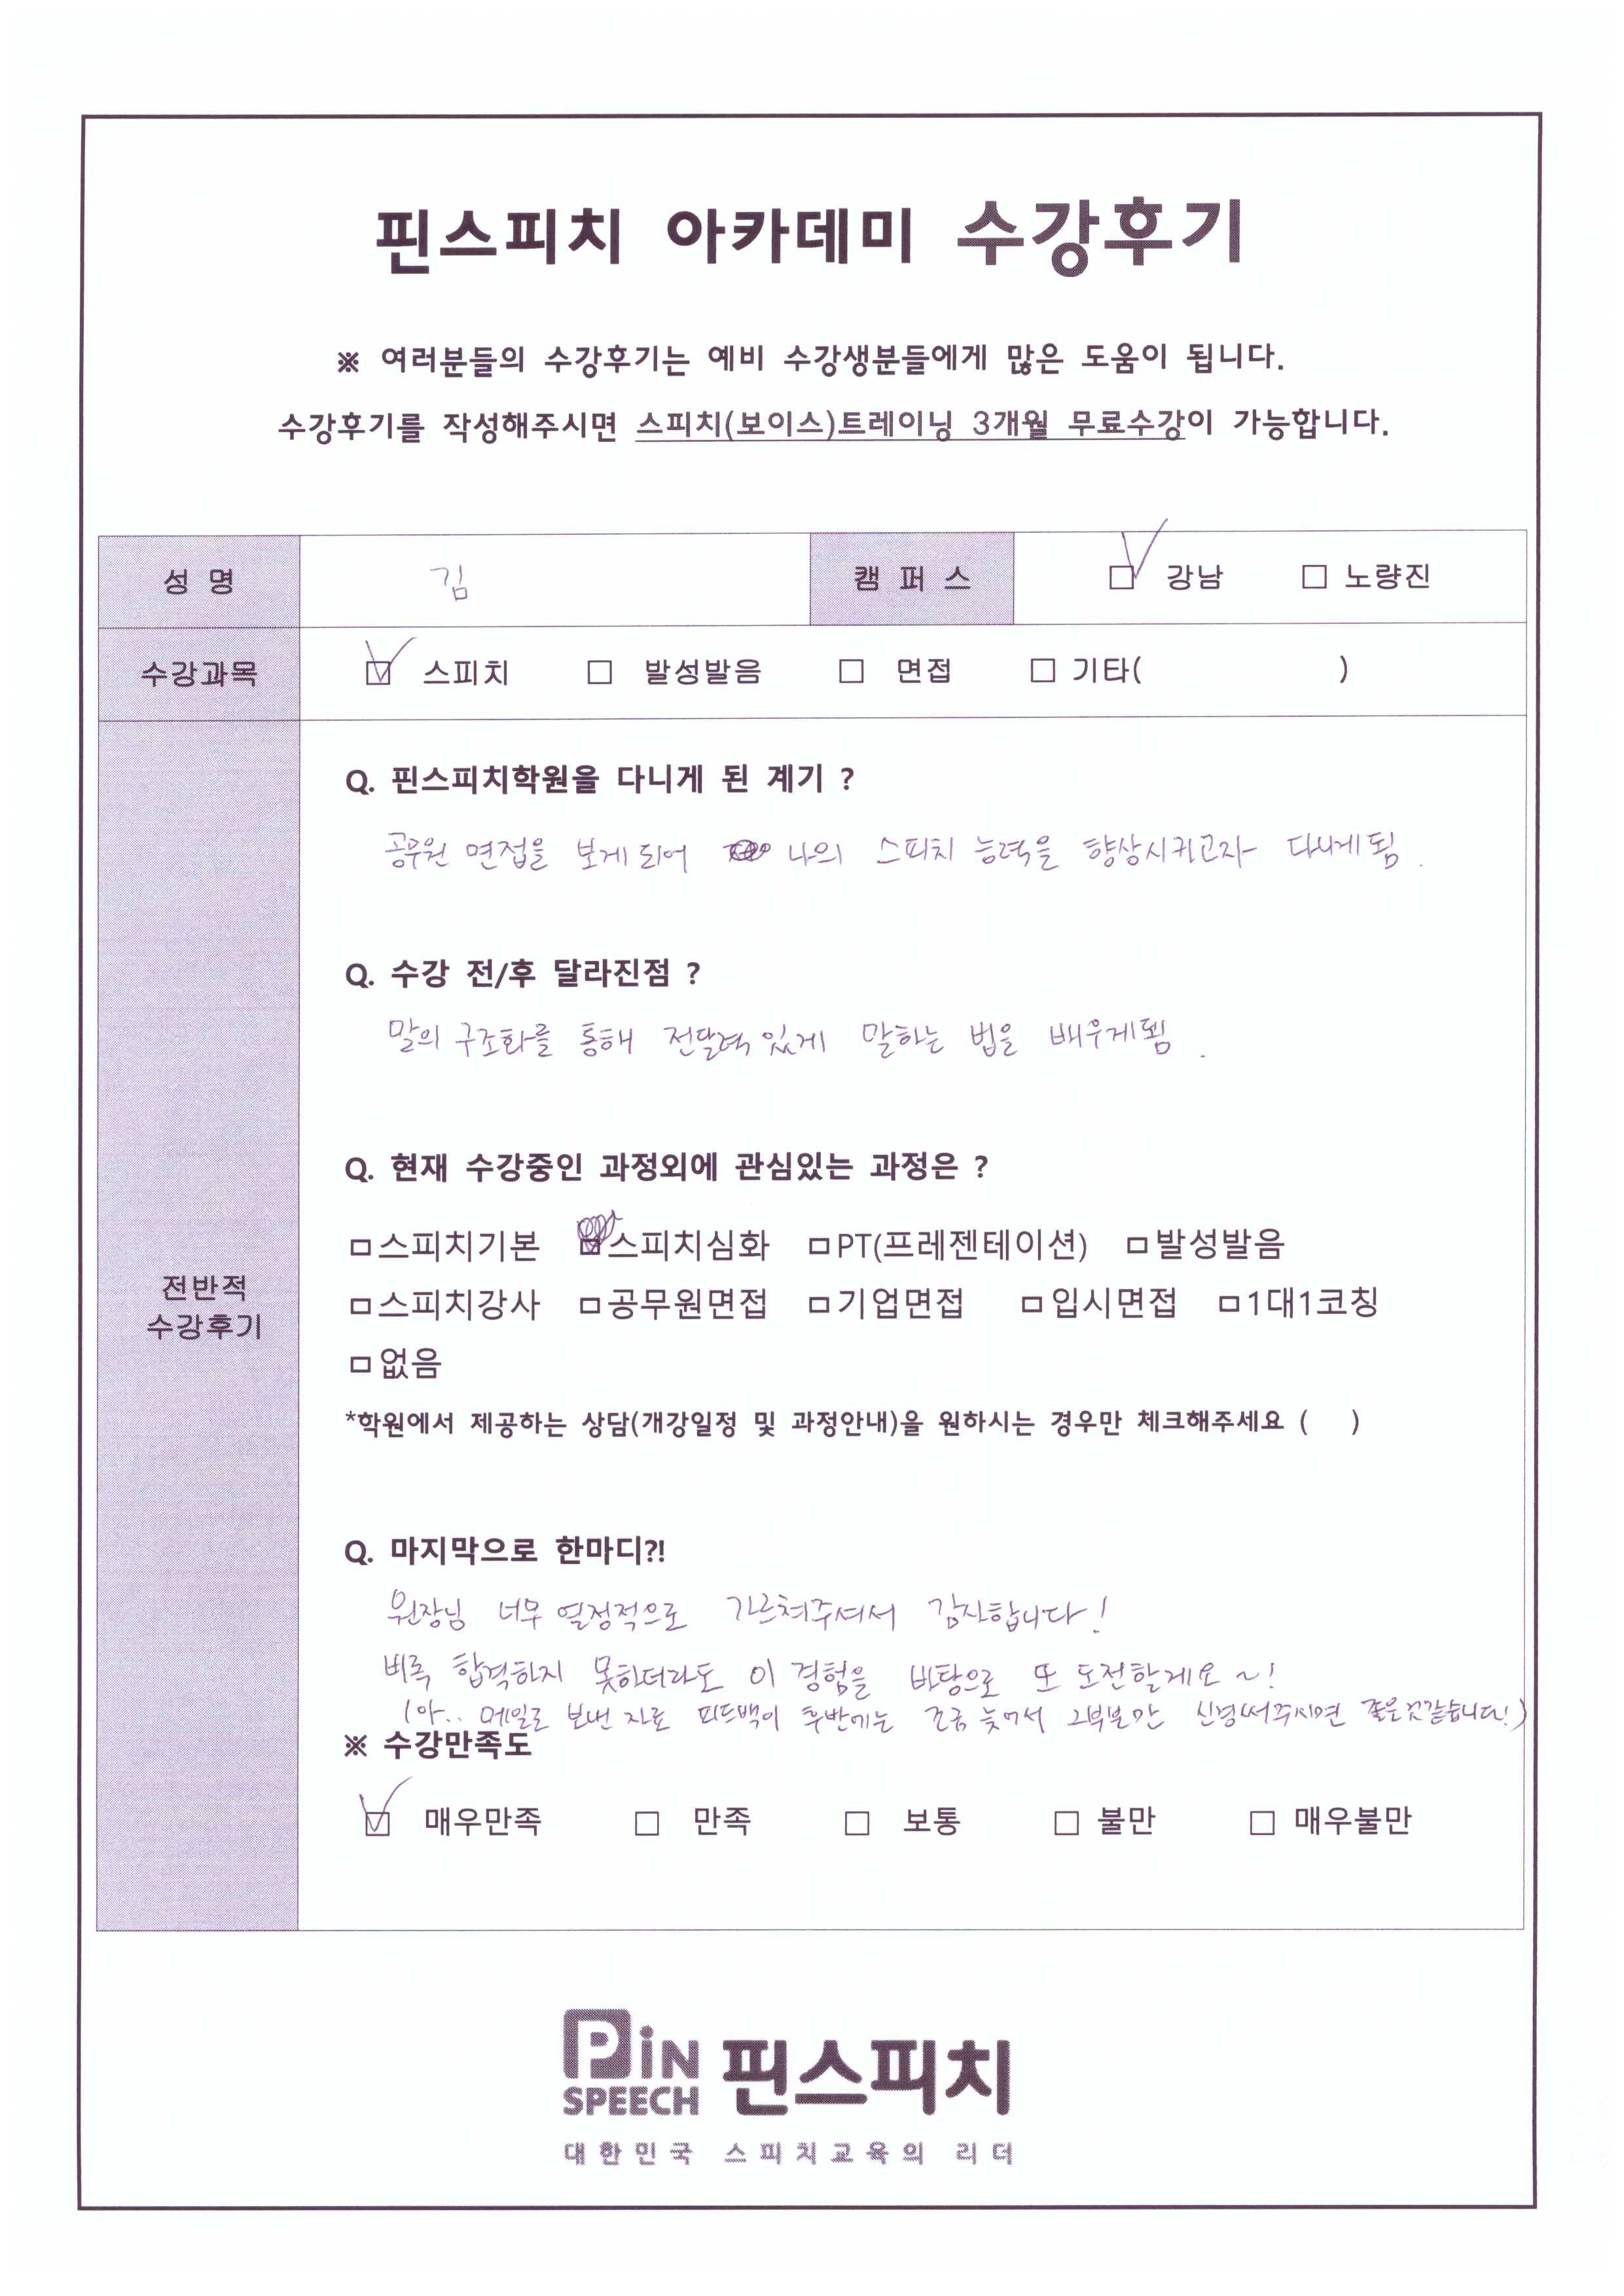 핀스피치 아카데미 수강후기
※ 여러분들의 수강후기는 예비 수강생분들에게 많은 도움이 됩니다.
수강후기를 작성해주시면 스피치(보이스)트레이닝 3개월 무료수강이 가능합니다.
성 명 김 캠 퍼 스 ☑ 강남 □ 노량진
수강과목 ☑ 스피치 □ 발성발음 □ 면접 □ 기타( )
Q. 핀스피치학원을 다니게 된 계기 ?
공무원 면접을 보게 되어 나의 스피치 능력을 향상시키고자 다니게 됨.
Q. 수강 전/후 달라진점 ?
말의 구조화를 통해 전달력 있게 말하는 법을 배우게됨.
Q. 현재 수강중인 과정외에 관심있는 과정은 ?
□스피치기본 스피치심화 □PT(프레젠테이션) □발성발음
□스피치강사 □공무원면접 □기업면접 □입시면접 □1대1코칭
□없음
전반적
수강후기
*학원에서 제공하는 상담(개강일정 및 과정안내)을 원하시는 경우만 체크해주세요 ( )
Q. 마지막으로 한마디?!
원장님 너무 열정적으로 가르쳐주셔서 감사합니다!
비록 합격하지 못하더라도 이 경험을 바탕으로 또 도전할게요~!
(아.. 메일로 보낸 자료 피드백이 후반에는 조금 늦어서 그부분만 신경써주시면 좋은것같습니다!)
※ 수강만족도
☑ 매우만족 □ 만족 □ 보통 □ 불만 □ 매우불만
PiN
SPEECH 핀스피치
대한민국 스피치교육의 리더